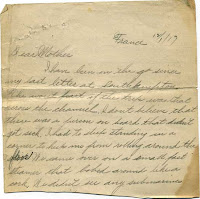 France 12/7/17
Dear Mother
I have been on the go since
my last letter at Southampton
across the channel. I don't believe that
there was a person on board that didn't
get sick. I had to sleep standing in a
corner to keep me from rolling around the
floor. We came over on a small fast
steamer that bobed around like a
cork. We didn't see any submarines